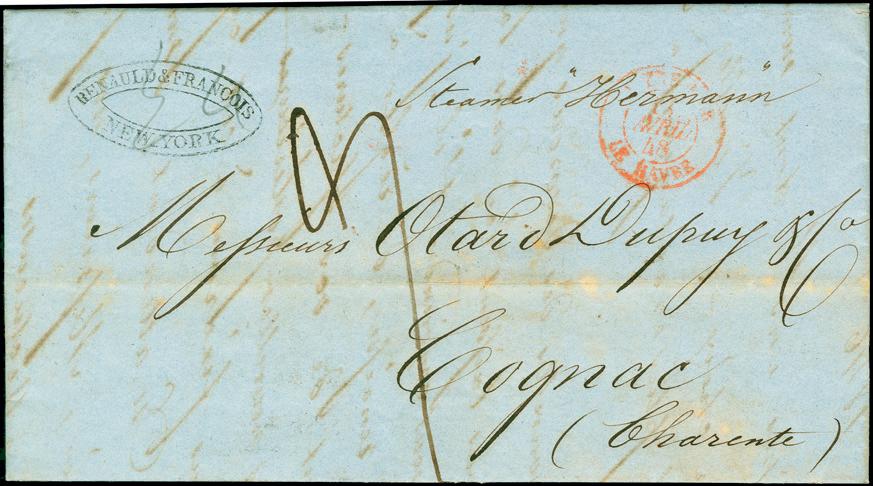 RENAULD & FRANCOIS
NEW YORK
Steamer "Hermann"
AVRIL
48
LE HAVRE
Messieurs Otard Dupuy & Co
Cognac
(Charente)